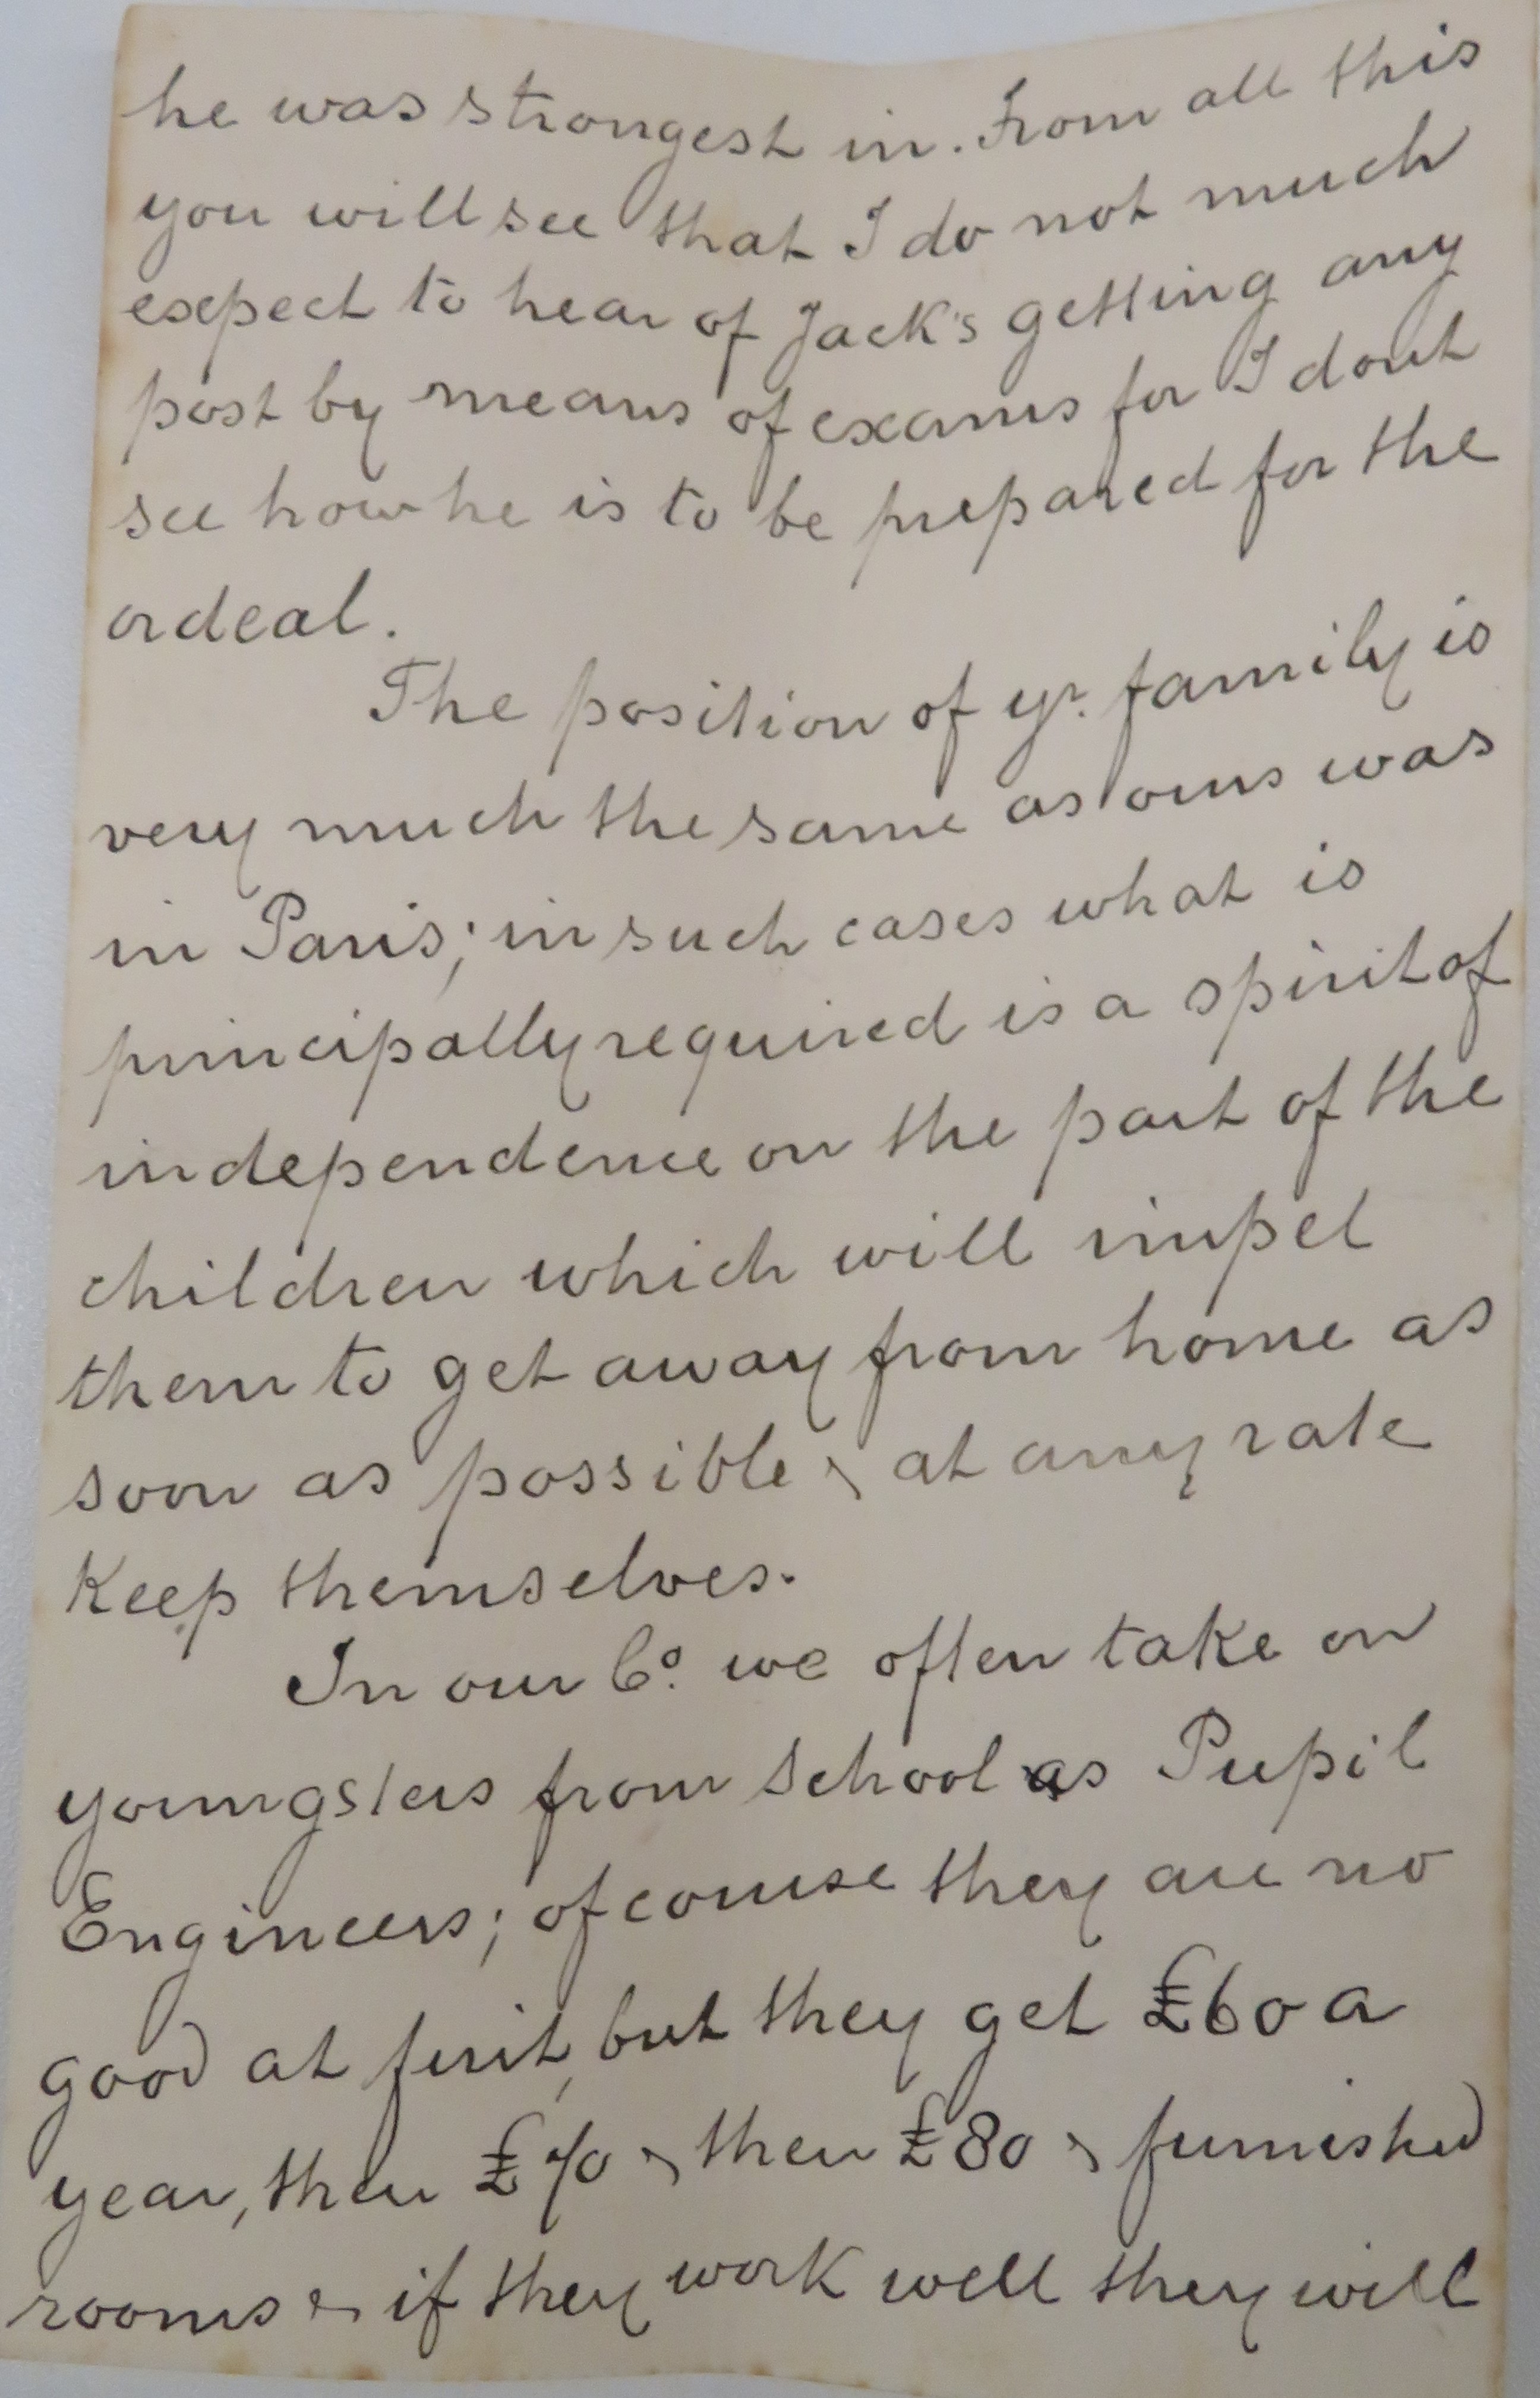 he was strongest in. From all this
you will see that I do not much
expect to hear of Jack's getting any
post by means of exams for I dont
see how he is to be prepared for the
ordeal.
The position of yr. family is
very much the same as ours was
in Paris; in such cases what is
principally required is a spirit of
independence on the part of the
children which will impel
them to get away from home as
soon as possible & at any rate
Keep themselves.
In our Co. we often take on
youngsters from school as Pupil
Engineers; of course they are no
good at first, but they get £60 a
year, then £70 & then £80 & furnished
rooms & if they work well they will